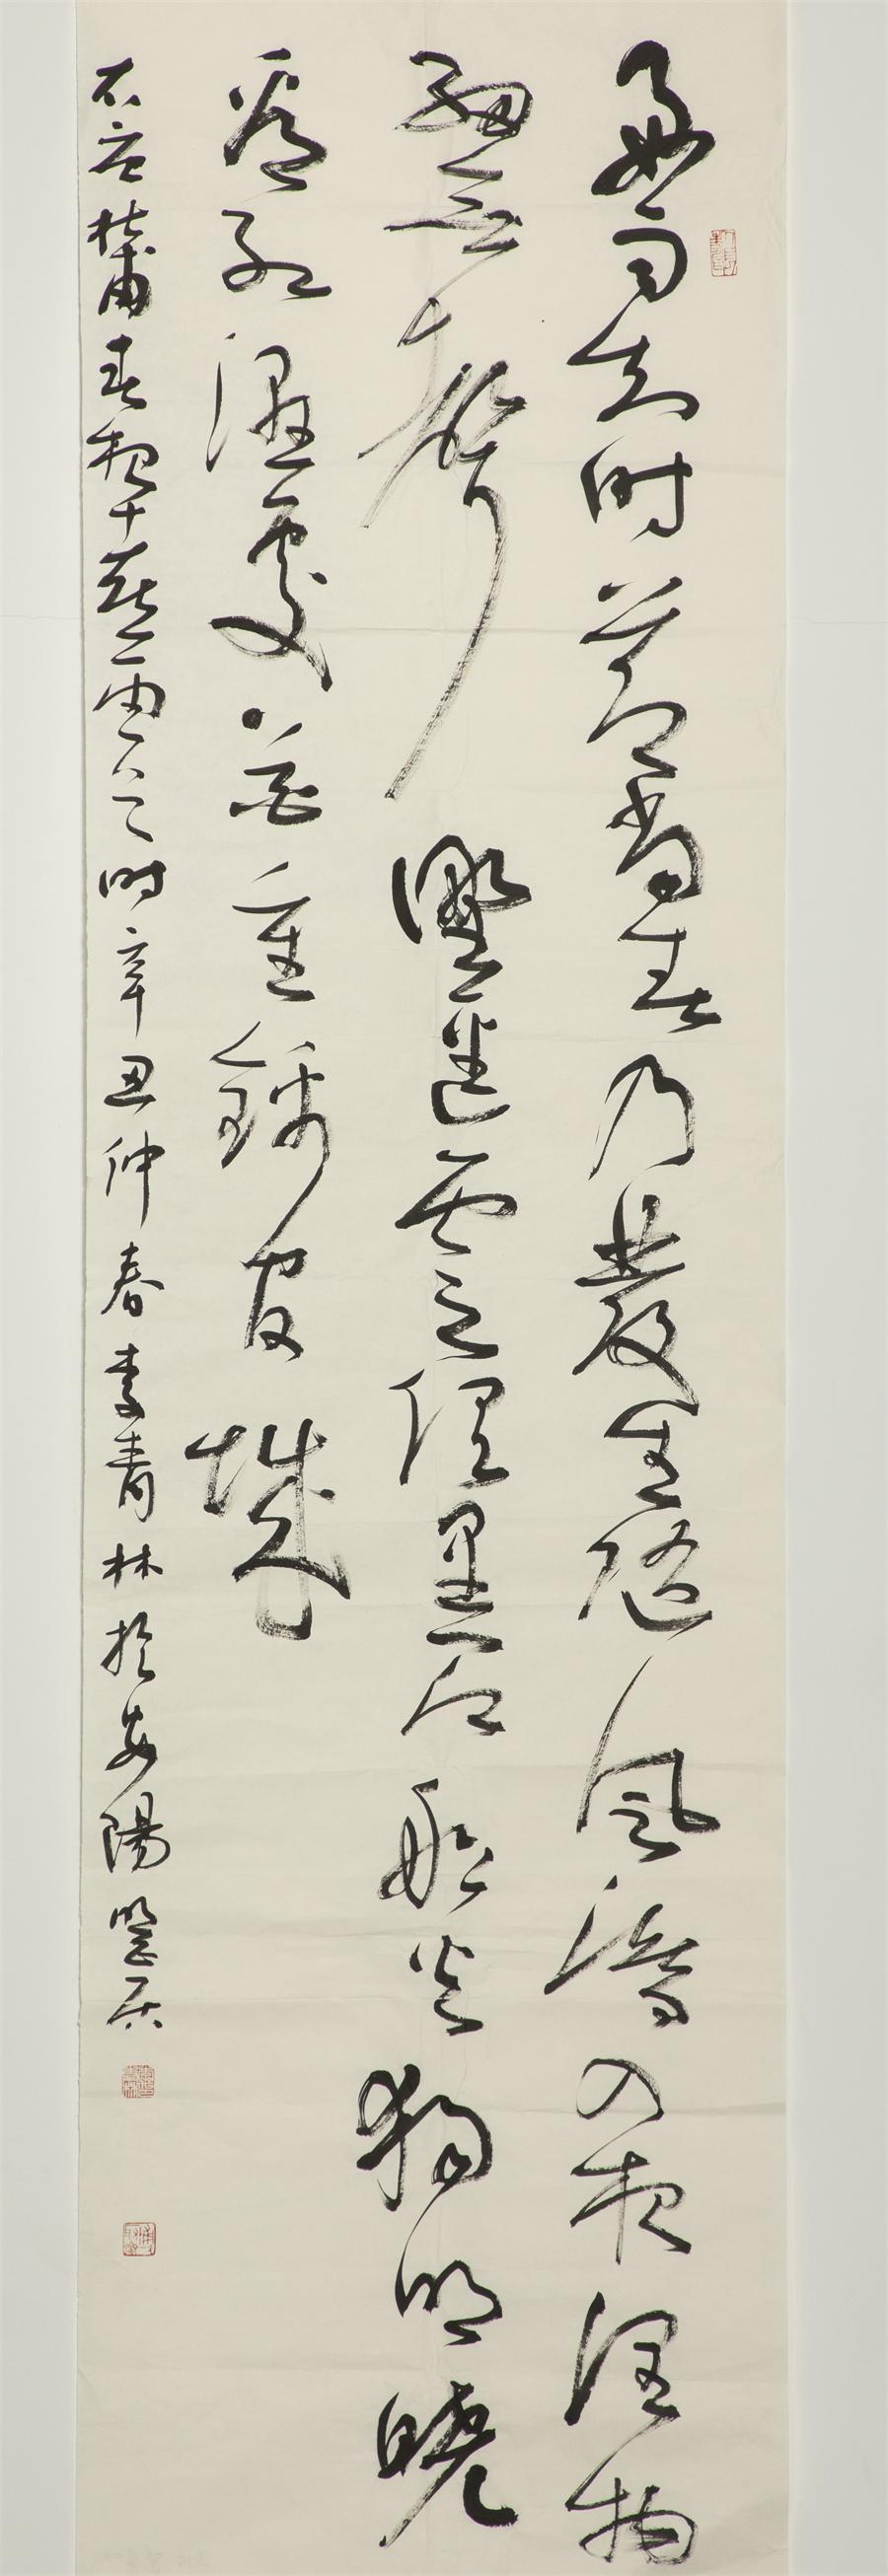 好雨知时節當春乃發生隨風潛入夜潤物
細無聲野徑雲俱黑江船火獨明曉
看紅濕處花重錦官城
右杜甫春夜喜雨时辛丑仲春李青林於安陽居